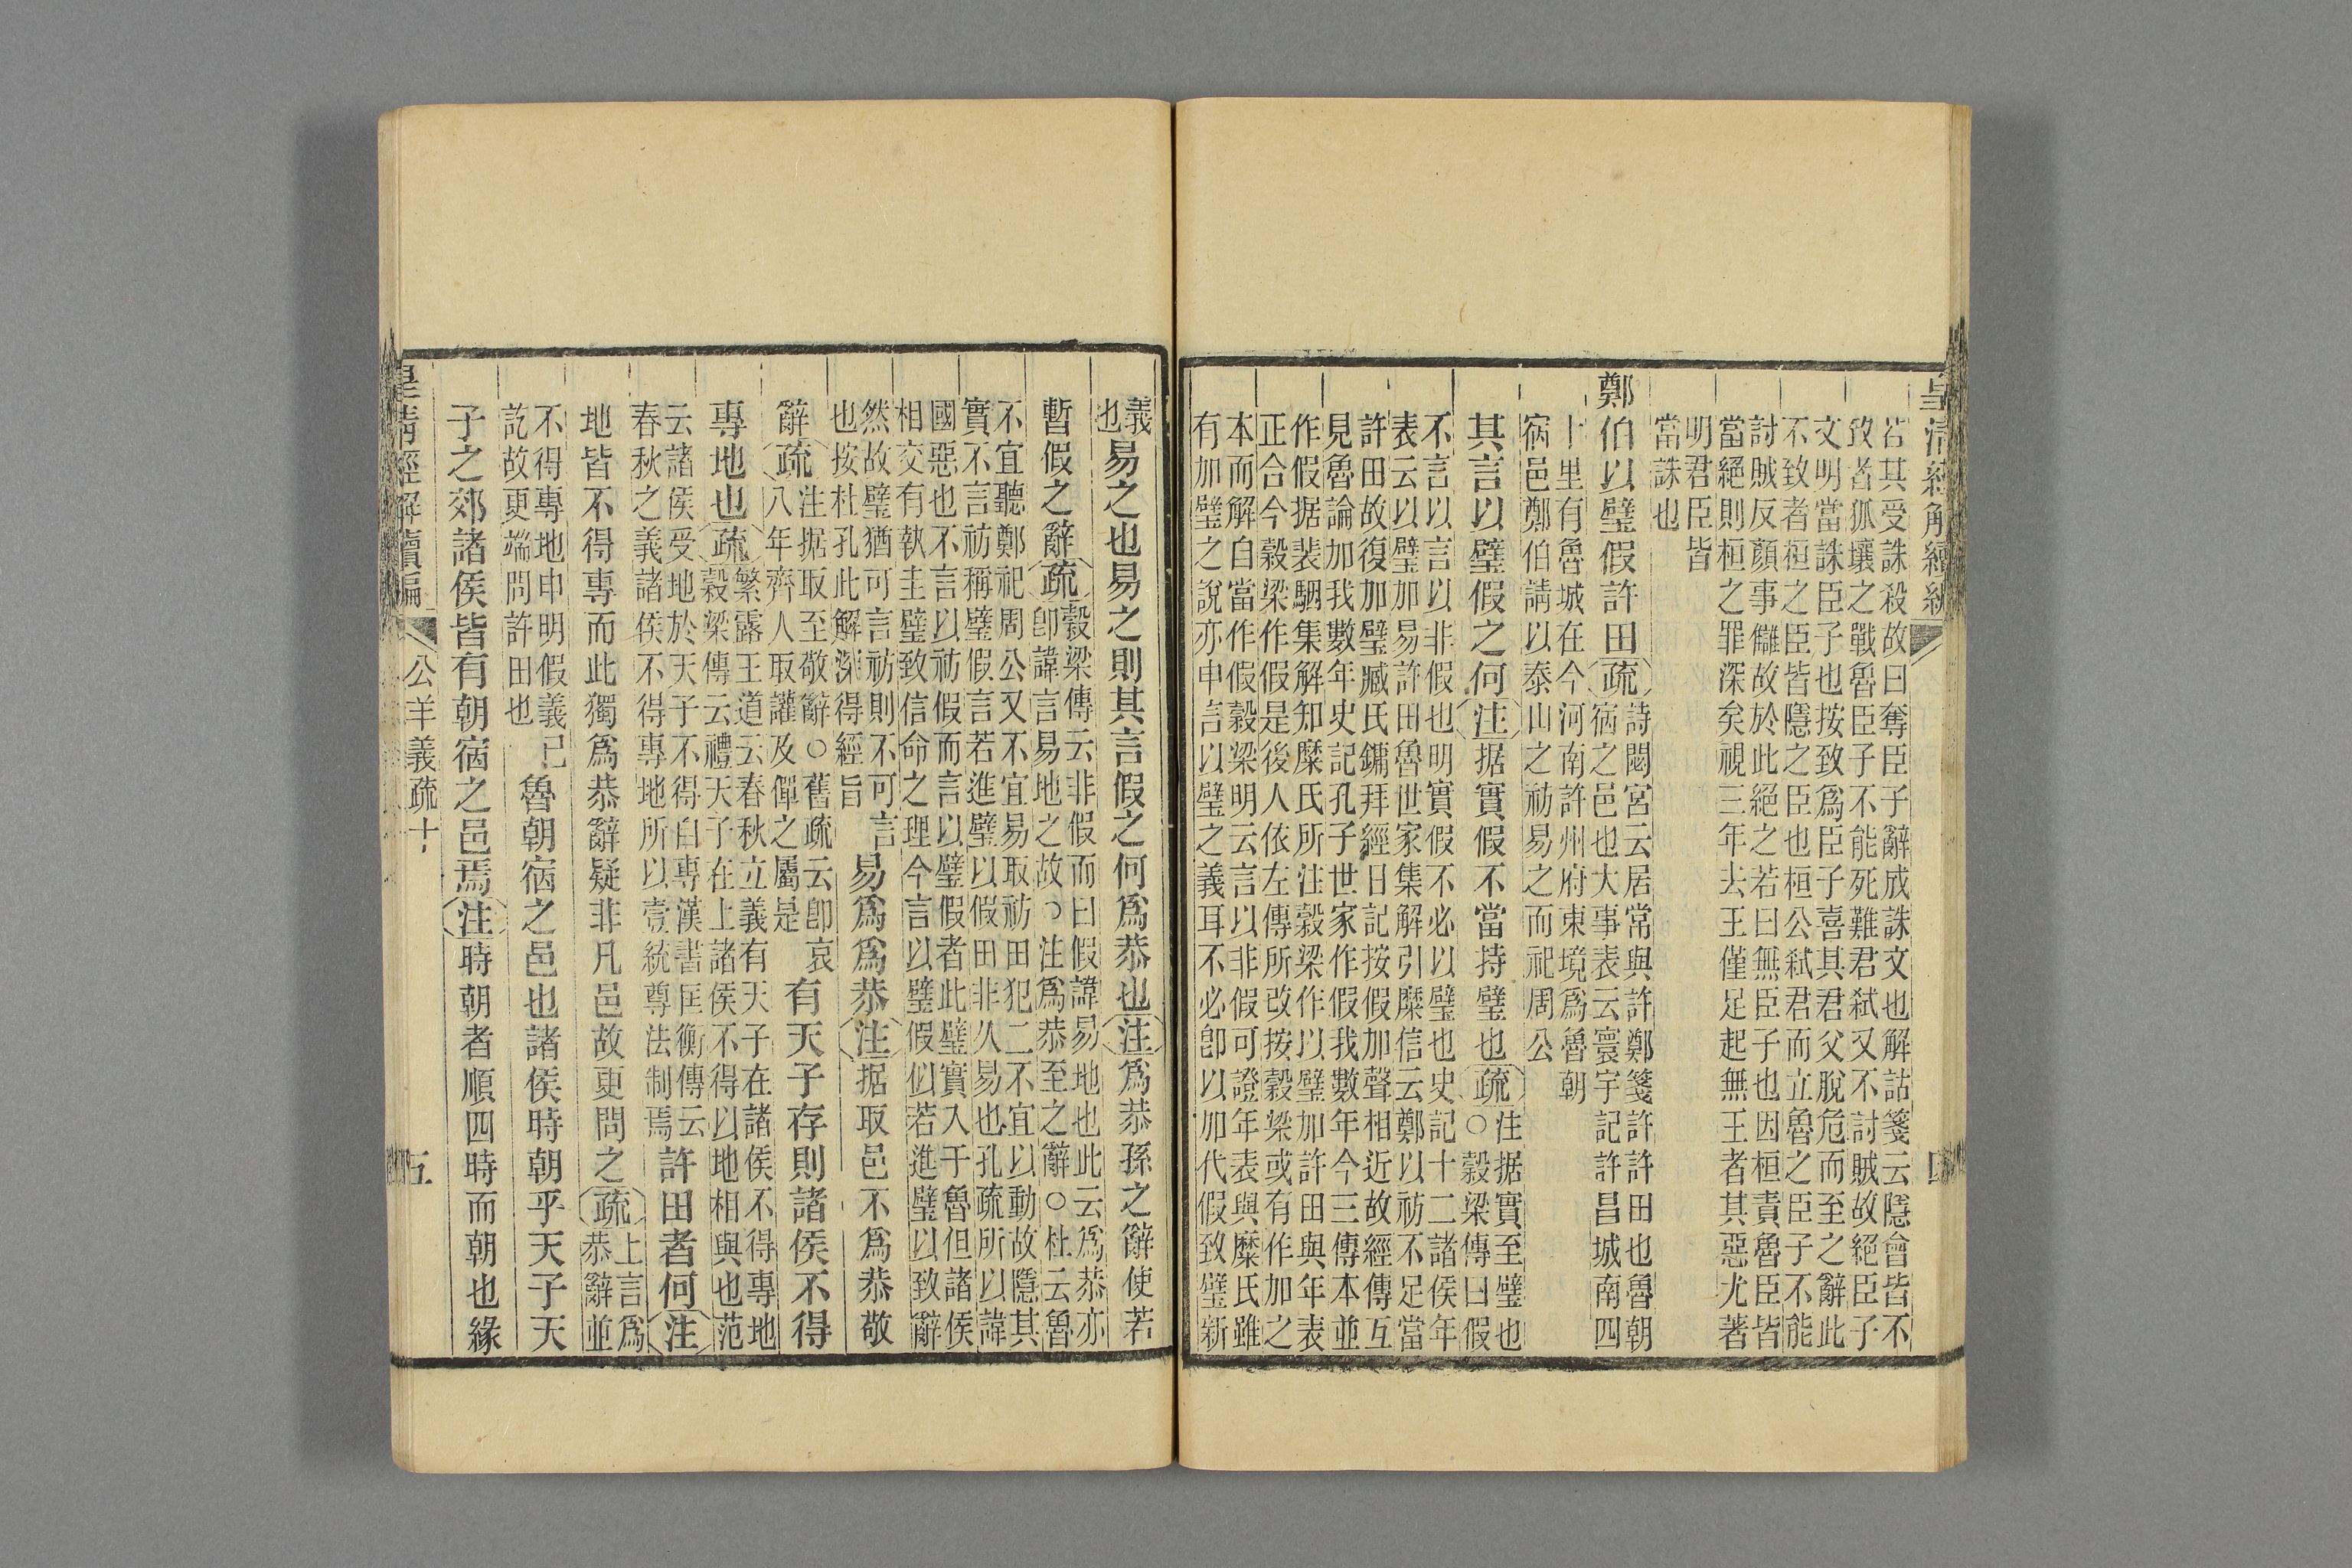 皇清經解續編 四
若其受誅殺故曰奪臣子辭成誅文也解詁箋云隱會皆不
致者狐壤之戰魯臣子不能死難君弑又不討賊故絕臣子
文明當誅臣子也按致爲臣子喜其君父脫危而至之辭此
不致者桓之臣皆隱之臣也桓公弑君而立魯之臣子不能
討賊反顏事讎故於此絕之若曰無臣子也因桓責魯臣皆
當絕則桓之罪深矣視三年去王僅足起無王者其惡尤著
明君臣皆
當誅也
鄭伯以璧假許田疏詩閟宮云居常與許鄭箋許許田也魯朝
宿之邑也大事表云寰宇記許昌城南四
十里有魯城在今河南許州府東境爲魯朝
宿邑鄭伯請以泰山之祊易之而祀周公
其言以璧假之何注据實假不當持璧也疏注据實至璧也
○穀梁傳曰假
不言以言以非假也明實假不必以璧也史記十二諸侯年
表云以璧加易許田魯世家集解引糜信云鄭以祊不足當
許田故復加璧臧氏鏞拜經日記按假加聲相近故經傳互
見魯論加我數年史記孔子世家作假我數年今三傳本並
作假据裴駰集解知糜氏所注穀梁作以璧加許田與年表
正合今穀梁作假是後人依左傳所改按穀梁或有作加之
本而解白當作假穀梁明云言以非假可證年表與糜氏雖
有加璧之說亦申言以璧之義耳不必卽以加代假致璧新
義
也易之也易之則其言假之何爲恭也注爲恭孫之辭使若
暫假之辭疏穀梁傳云非假而曰假諱易地也此云爲恭亦
卽諱言易地之故○注爲恭至之辭○杜云魯
不宜聽鄭祀周公又不宜易取祊田犯二不宜以動故隱其
實不言祊稱璧假言若進璧以假田非久易也孔疏所以諱
國惡也不言以祊假而言以璧假者此璧實入于魯但諸侯
相交有執圭璧致信命之理今言以璧假似若進璧以致辭
然故璧猶可言祊則不可言
也按杜孔此解深得經旨易爲爲恭注据取邑不爲恭敬
辭疏注据取至敬辭○舊疏云卽哀
八年齊人取讙及僤之屬是有天子存則諸侯不得
專地也疏繁露王道云春秋立義有天子在諸侯不得專地
穀梁傳云禮天子在上諸侯不得以地相與也范
云諸侯受地於天子不得自專漢書匡衡傳云
春秋之義諸侯不得專地所以壹統尊法制焉許田者何注
地皆不得專而此獨爲恭辭疑非凡邑故更問之疏上言爲
恭辭並
不得專地申明假義已
訖故更端問許田也魯朝宿之邑也諸侯時朝乎天子天
子之郊諸侯皆有朝宿之邑焉注時朝者順四時而朝也緣
皇清經解續編 公羊義疏十 五